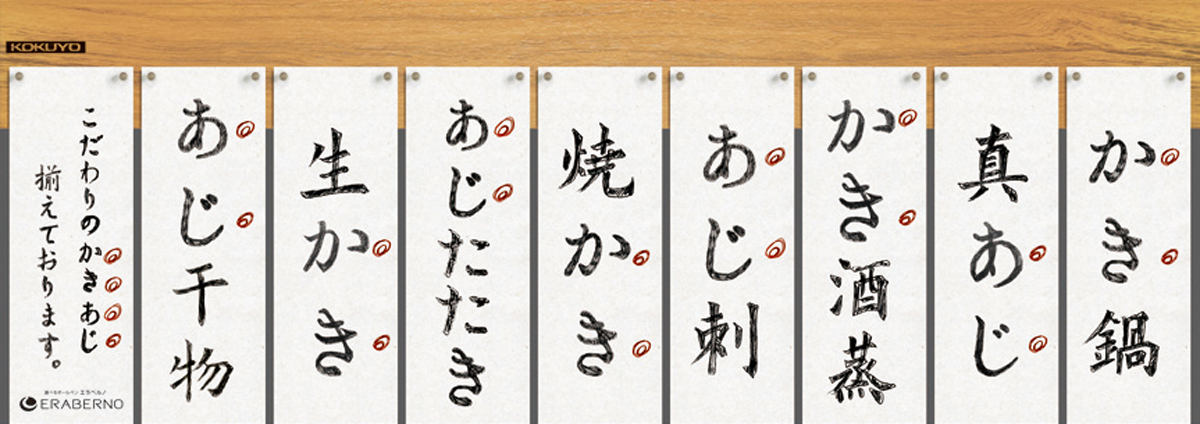 KOKUYO
かき鍋
真あじ
かき酒蒸
あじ刺
焼かき
あじたたき
生かき
あじ干物
こだわりのかきあじ
揃えております。
選べるボールペン エラベルノ
ERABERNO